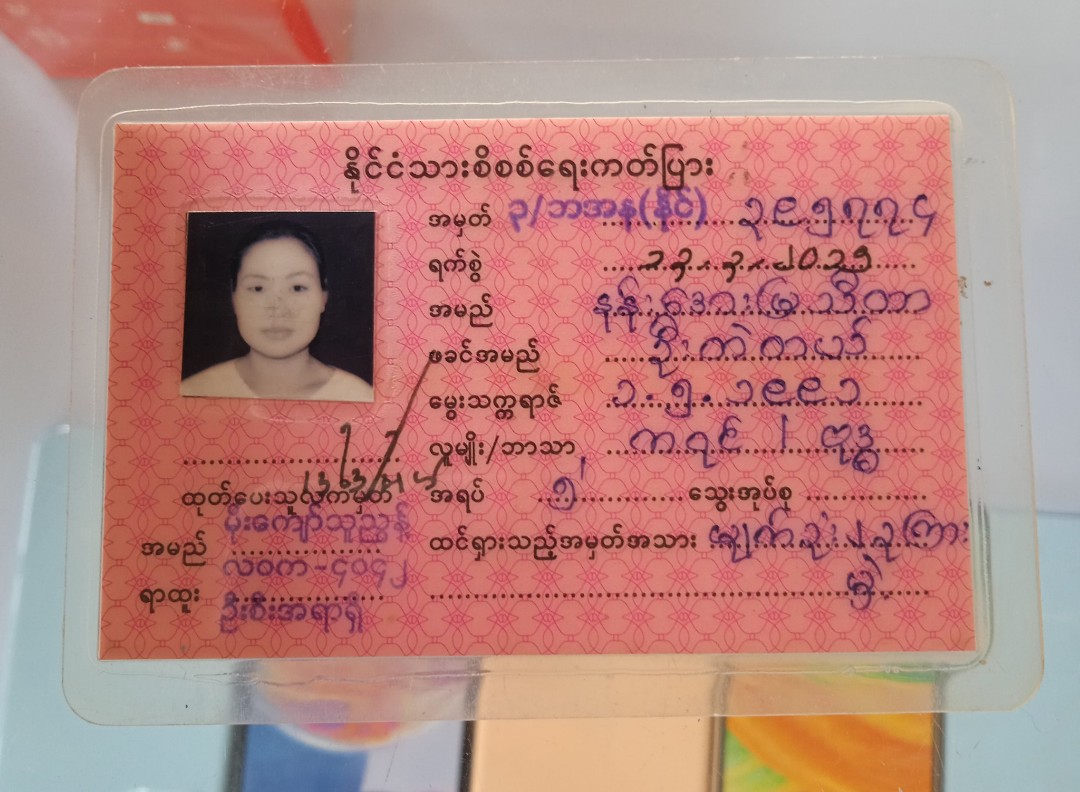 နိုင်ငံသားစိစစ်ရေးကတ်ပြား
အမှတ် ၃/ဘအန(နိုင်) ၃၉၅၇၇၄
ရက်စွဲ
အမည် နန်းအေးမြသီတာ
ဖခင်အမည်
မွေးသက္ကရာဇ် ၁.၅.၁၉၉၁
လူမျိုး/ဘာသာ ကရင် / ဗုဒ္ဓ
အရပ် ၅' သွေးအုပ်စု
ထင်ရှားသည့်အမှတ်အသား
ထုတ်ပေးသူလက်မှတ်
မိုးကျော်သူညွန့်
အမည်
လဝက-၄၀၄၂
ရာထူး
ဦးစီးအရာရှိ